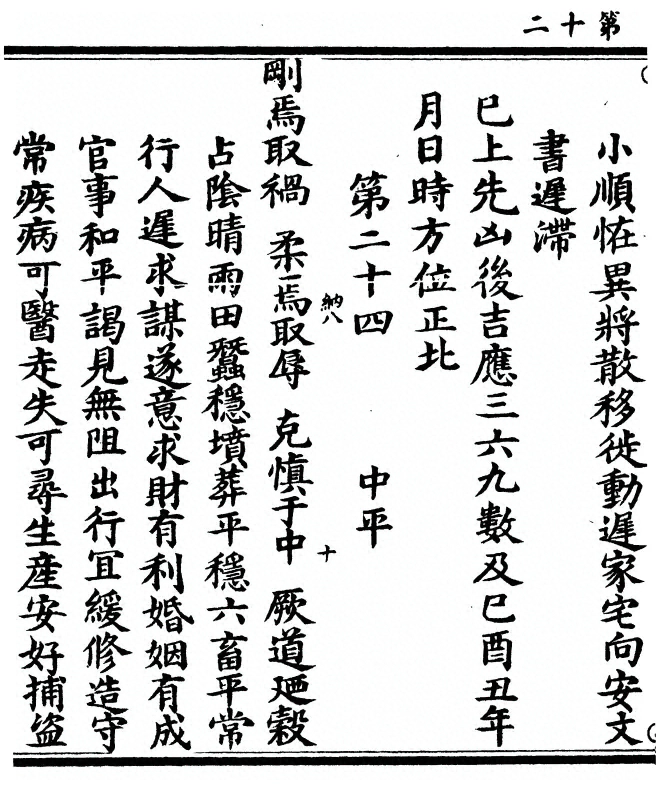 第十二
小順恠異將散移徙動遲家宅向安文
書遲滯
已上先凶後吉應三六九數及巳酉丑年
月日時方位正北
第二十四 中平
納八 十
剛焉取禍 柔焉取辱 克慎于中 厥道廼穀
占陰晴雨田蠶穩墳葬平穩六畜平常
行人遲求謀遂意求財有利婚姻有成
官事和平謁見無阻出行宜緩修造守
常疾病可醫走失可尋生產安好捕盜